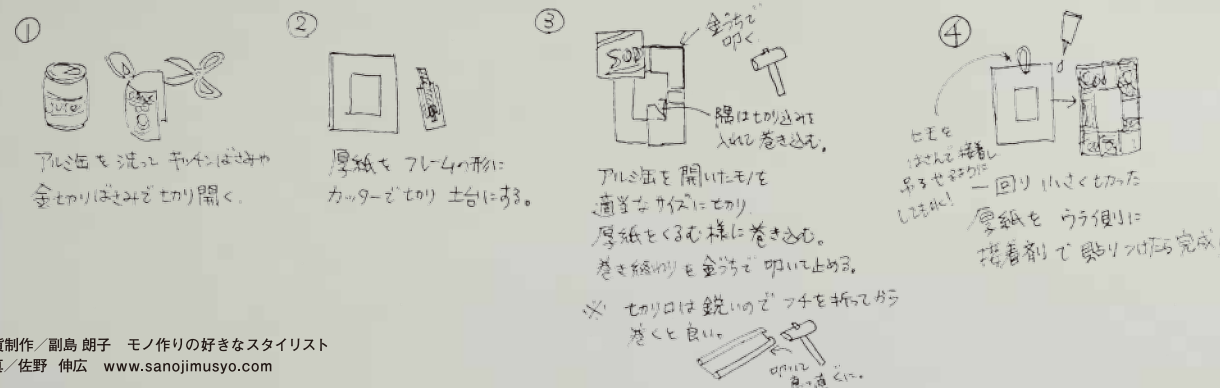 ①
JUICE
アルミ缶を洗ってキッチンばさみや
金切りばさみで切り開く。
②
厚紙をフレームの形に
カッターで切り土台にする。
③
金づちで
叩く
SOD
隅は切り込みを
入れて巻き込む。
アルミ缶を開いたモノを
適当なサイズに切り
厚紙をくるむ様に巻き込む。
巻き終わりを金づちで叩いて止める。
※ 切り口は鋭いのでフチを折ってから
巻くと良い。
叩いて
真っ直ぐに。
④
ヒモを
はさんで接着し
吊るせるように
しても良い!
一回り小さく切った
厚紙をウラ側に
接着剤で貼りつけたら完成
制作／副島 朗子　モノ作りの好きなスタイリスト
／佐野 伸広　www.sanojimusyo.com